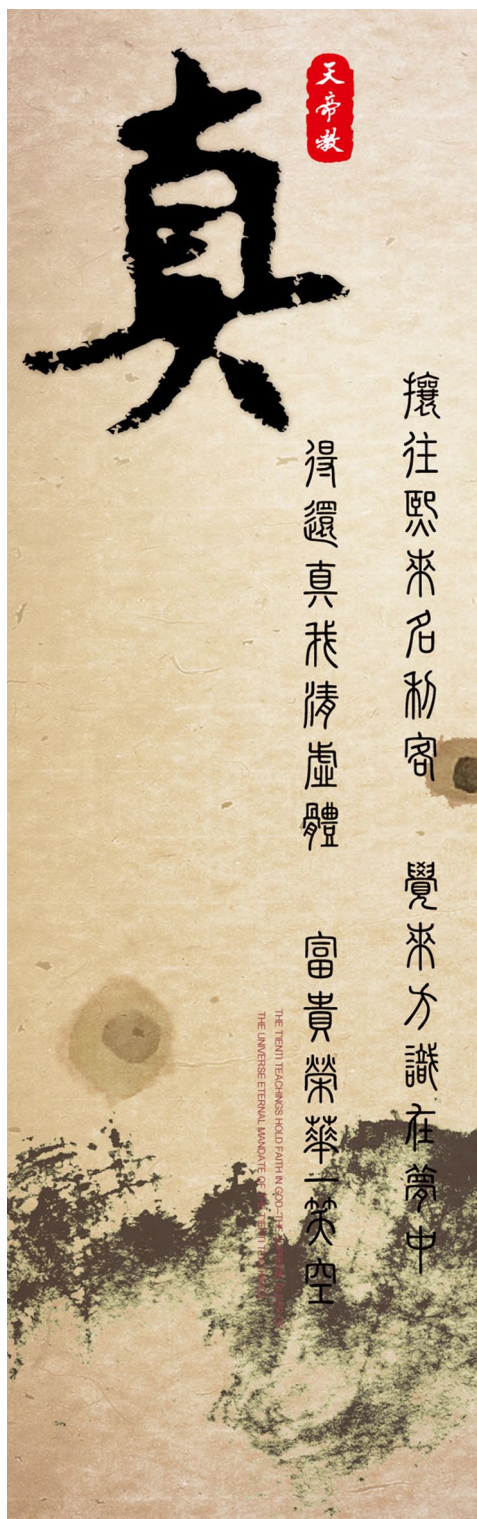 真
天帝教
攘往熙來名利客 覺來方識在夢中
得還真我清虛體 富貴榮華一笑空
THE TIENTI TEACHINGS HOLD FAITH IN GOD-THE
THE UNIVERSE ETERNAL MANDATE OF